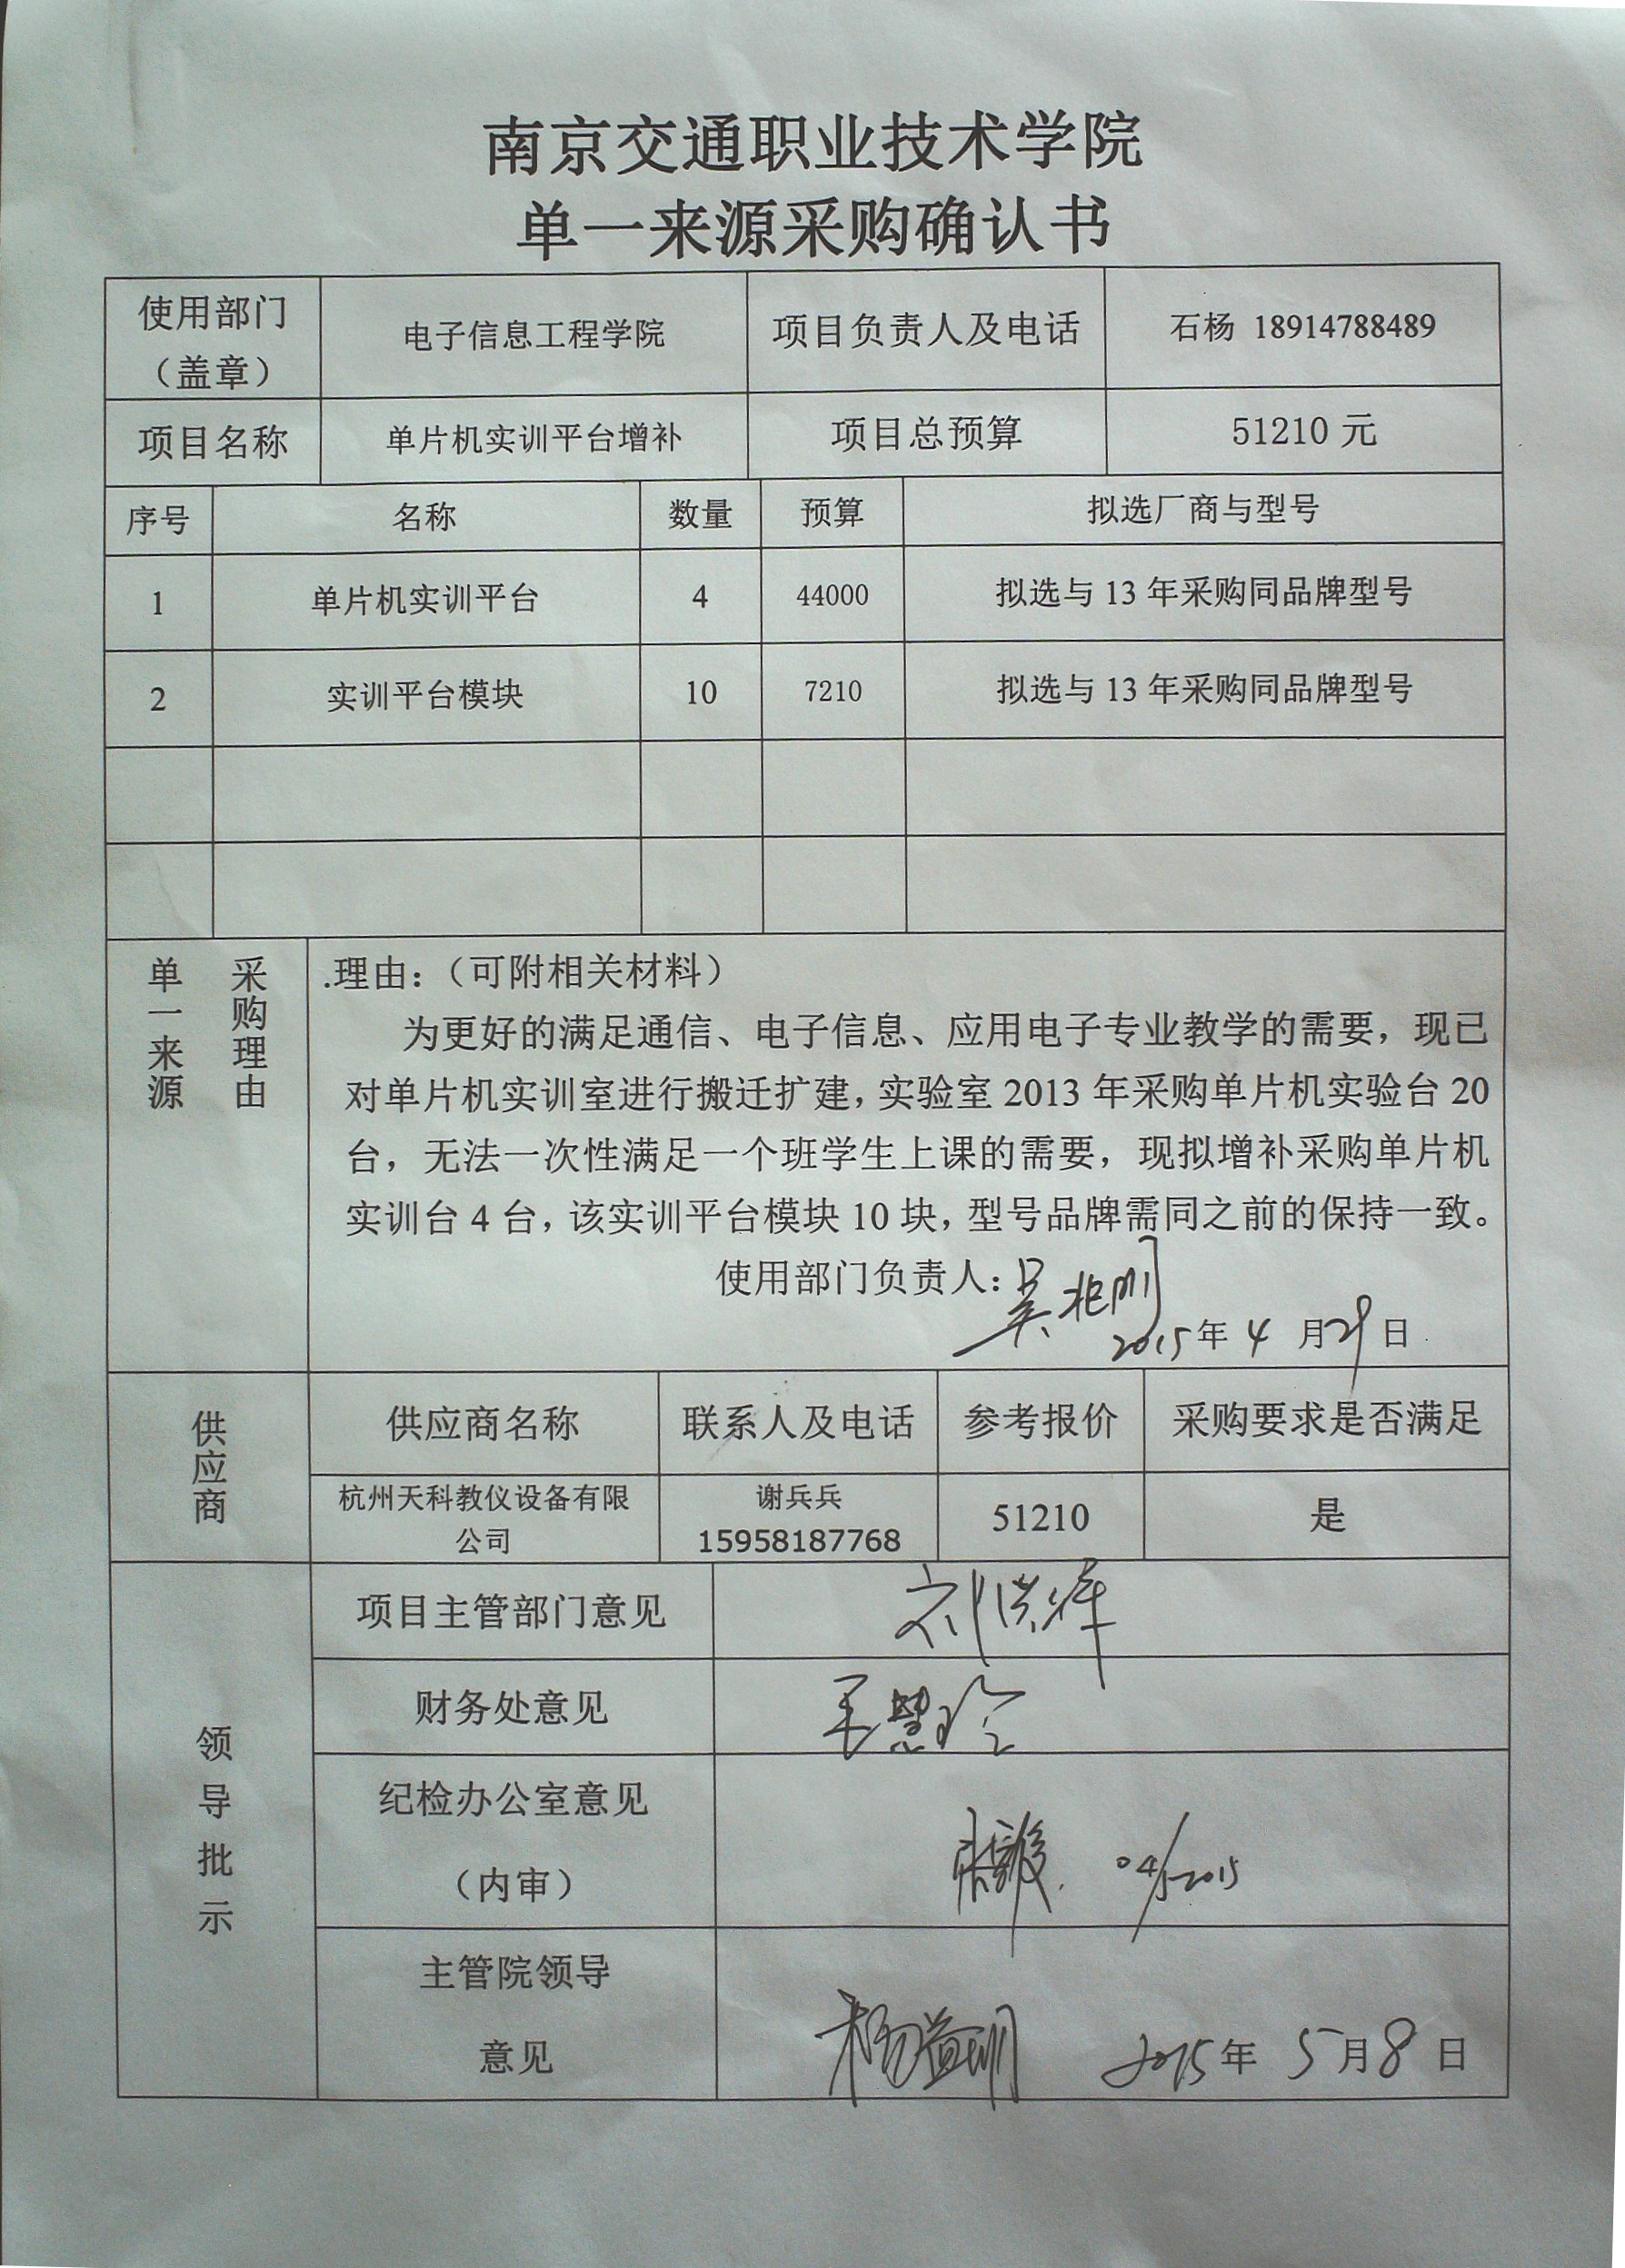 南京交通职业技术学院
单一来源采购确认书
使用部门
（盖章）
电子信息工程学院
项目负责人及电话
石杨 18914788489
项目名称
单片机实训平台增补
项目总预算
51210 元
序号 名称 数量 预算 拟选厂商与型号
1 单片机实训平台 4 44000 拟选与 13 年采购同品牌型号
2 实训平台模块 10 7210 拟选与 13 年采购同品牌型号
单一来源
采购理由
.理由：（可附相关材料）
为更好的满足通信、电子信息、应用电子专业教学的需要，现已
对单片机实训室进行搬迁扩建，实验室 2013 年采购单片机实验台 20
台，无法一次性满足一个班学生上课的需要，现拟增补采购单片机
实训台 4 台，该实训平台模块 10 块，型号品牌需同之前的保持一致。
使用部门负责人：吴兆明
2015年 4 月29日
供应商
供应商名称 联系人及电话 参考报价 采购要求是否满足
杭州天科教仪设备有限
公司
谢兵兵
15958187768
51210
是
领导批示
项目主管部门意见
刘洪辉
财务处意见
王慧玲
纪检办公室意见
（内审）
主管院领导
意见
杨益明 2015年 5月8日